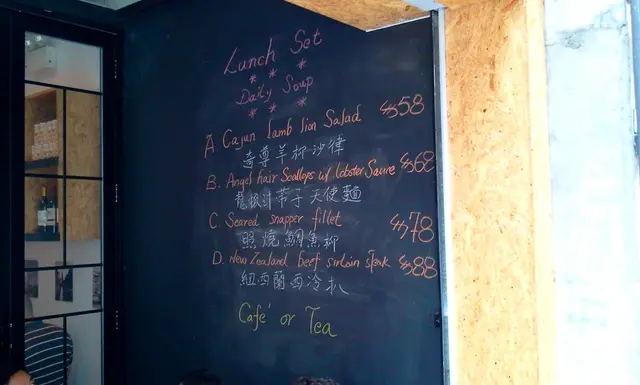 Lunch Set
* * *
Daily Soup
* * *
A. Cajun lamb lion Salad $58
奇尊羊柳沙律
B. Angel hair Scallops w/ lobster Sauce $68
龍扒汁带子天使麵
C. Seared snapper fillet $78
照燒鯛魚柳
D. New Zealand beef sirloin steak $88
紐西蘭西冷扒
Café or Tea